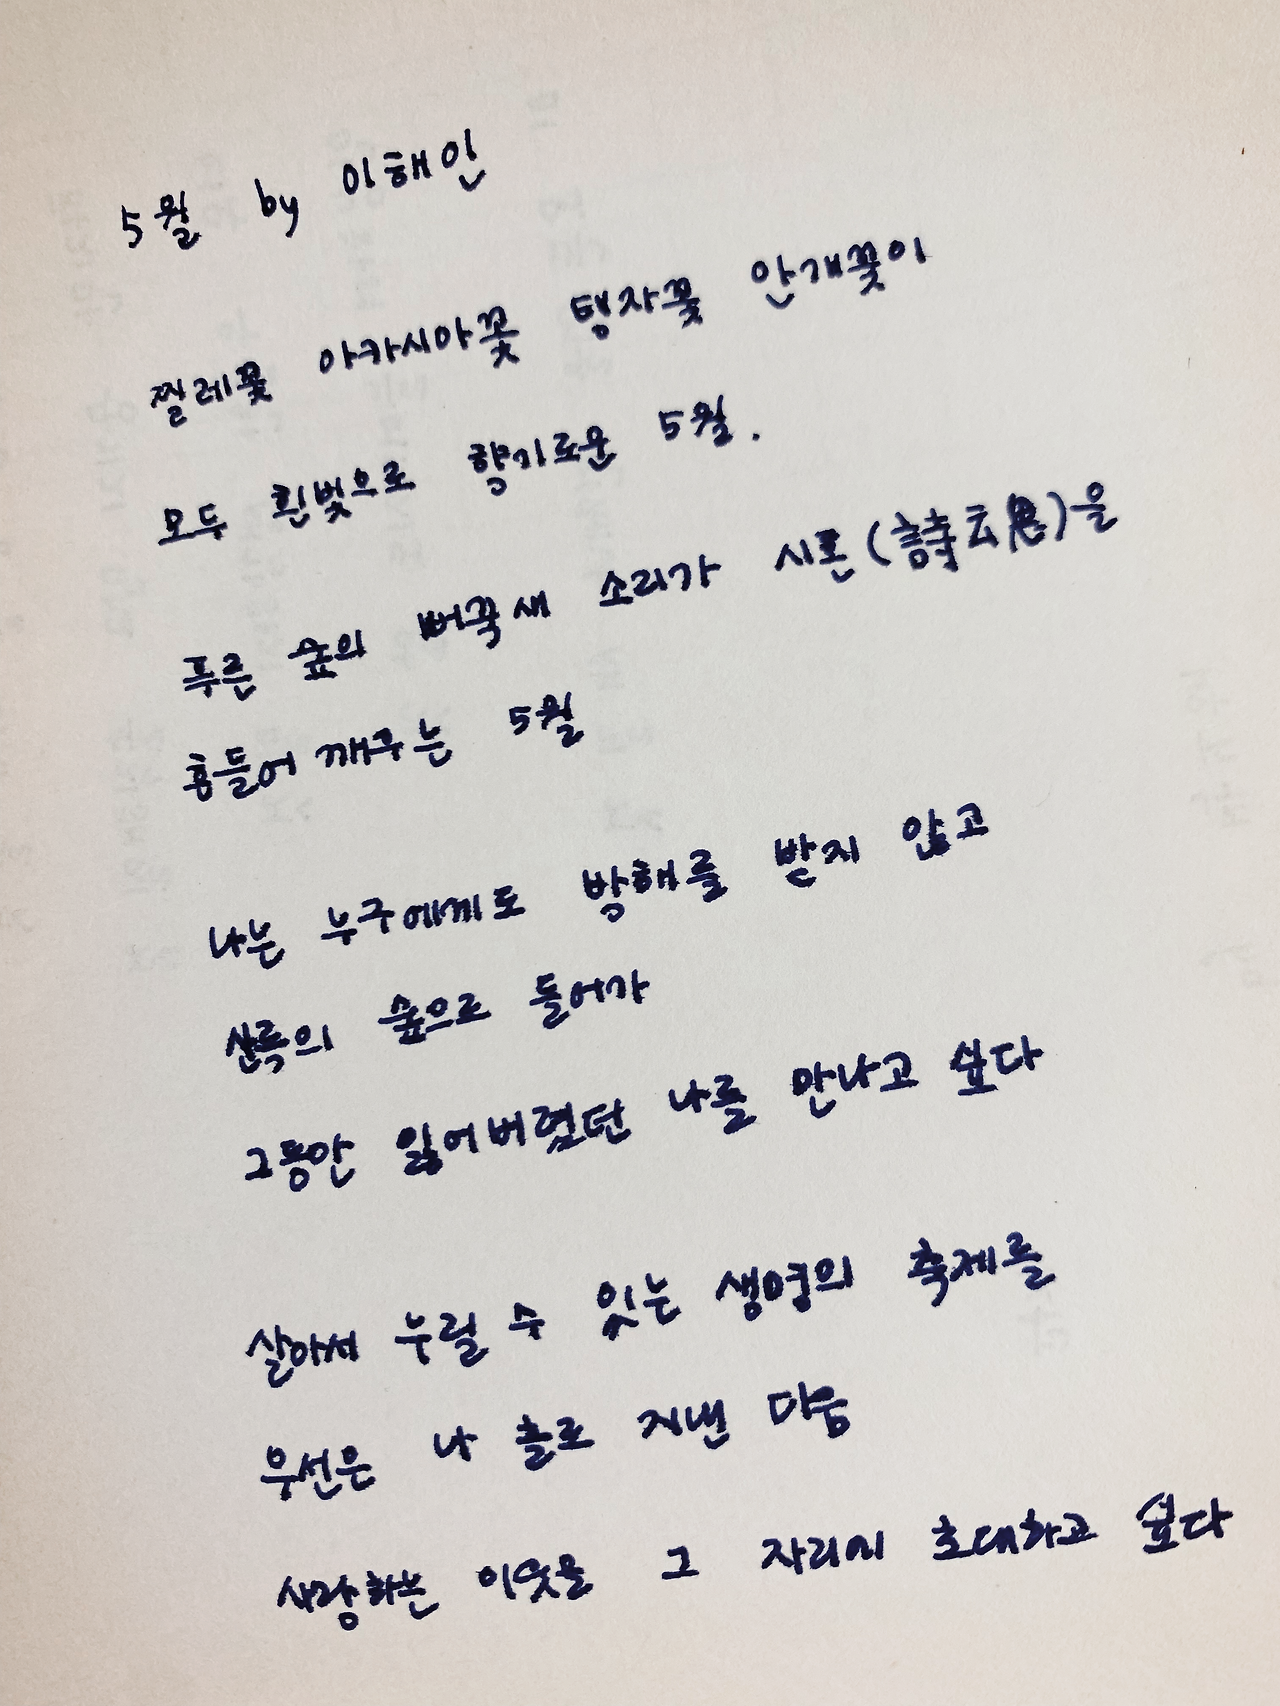 5월 by 이해인
찔레꽃 아카시아꽃 탱자꽃 안개꽃이
모두 흰빛으로 향기로운 5월.
푸른 숲의 뻐꾹새 소리가 시혼(詩云鬼)을
흔들어 깨우는 5월
나는 누구에게도 방해를 받지 않고
신록의 숲으로 들어가
그동안 잃어버렸던 나를 만나고 싶다
살아서 누릴 수 있는 생명의 축제를
우선은 나 홀로 지낸 다음
사랑하는 이웃을 그 자리에 초대하고 싶다